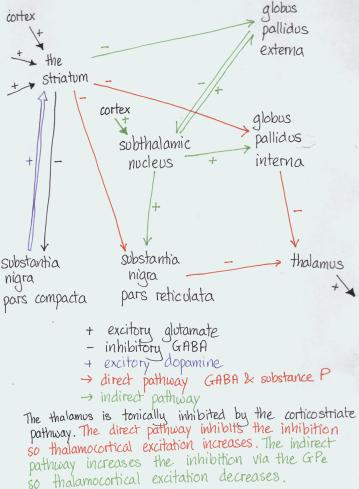 cortex
+
+
+
the
striatum
−
globus
pallidus
externa
−
−
+
cortex
+
subthalamic
nucleus
+
globus
pallidus
interna
+
−
−
+
−
−
substantia
nigra
pars compacta
substantia
nigra
pars reticulata
−
thalamus
+
+ excitory glutamate
− inhibitory GABA
+ excitory dopamine
→ direct pathway GABA & substance P
→ indirect pathway
The thalamus is tonically inhibited by the corticostriate
pathway. The direct pathway inhibits the inhibition
so thalamocortical excitation increases. The indirect
pathway increases the inhibition via the GPe
so thalamocortical excitation decreases.